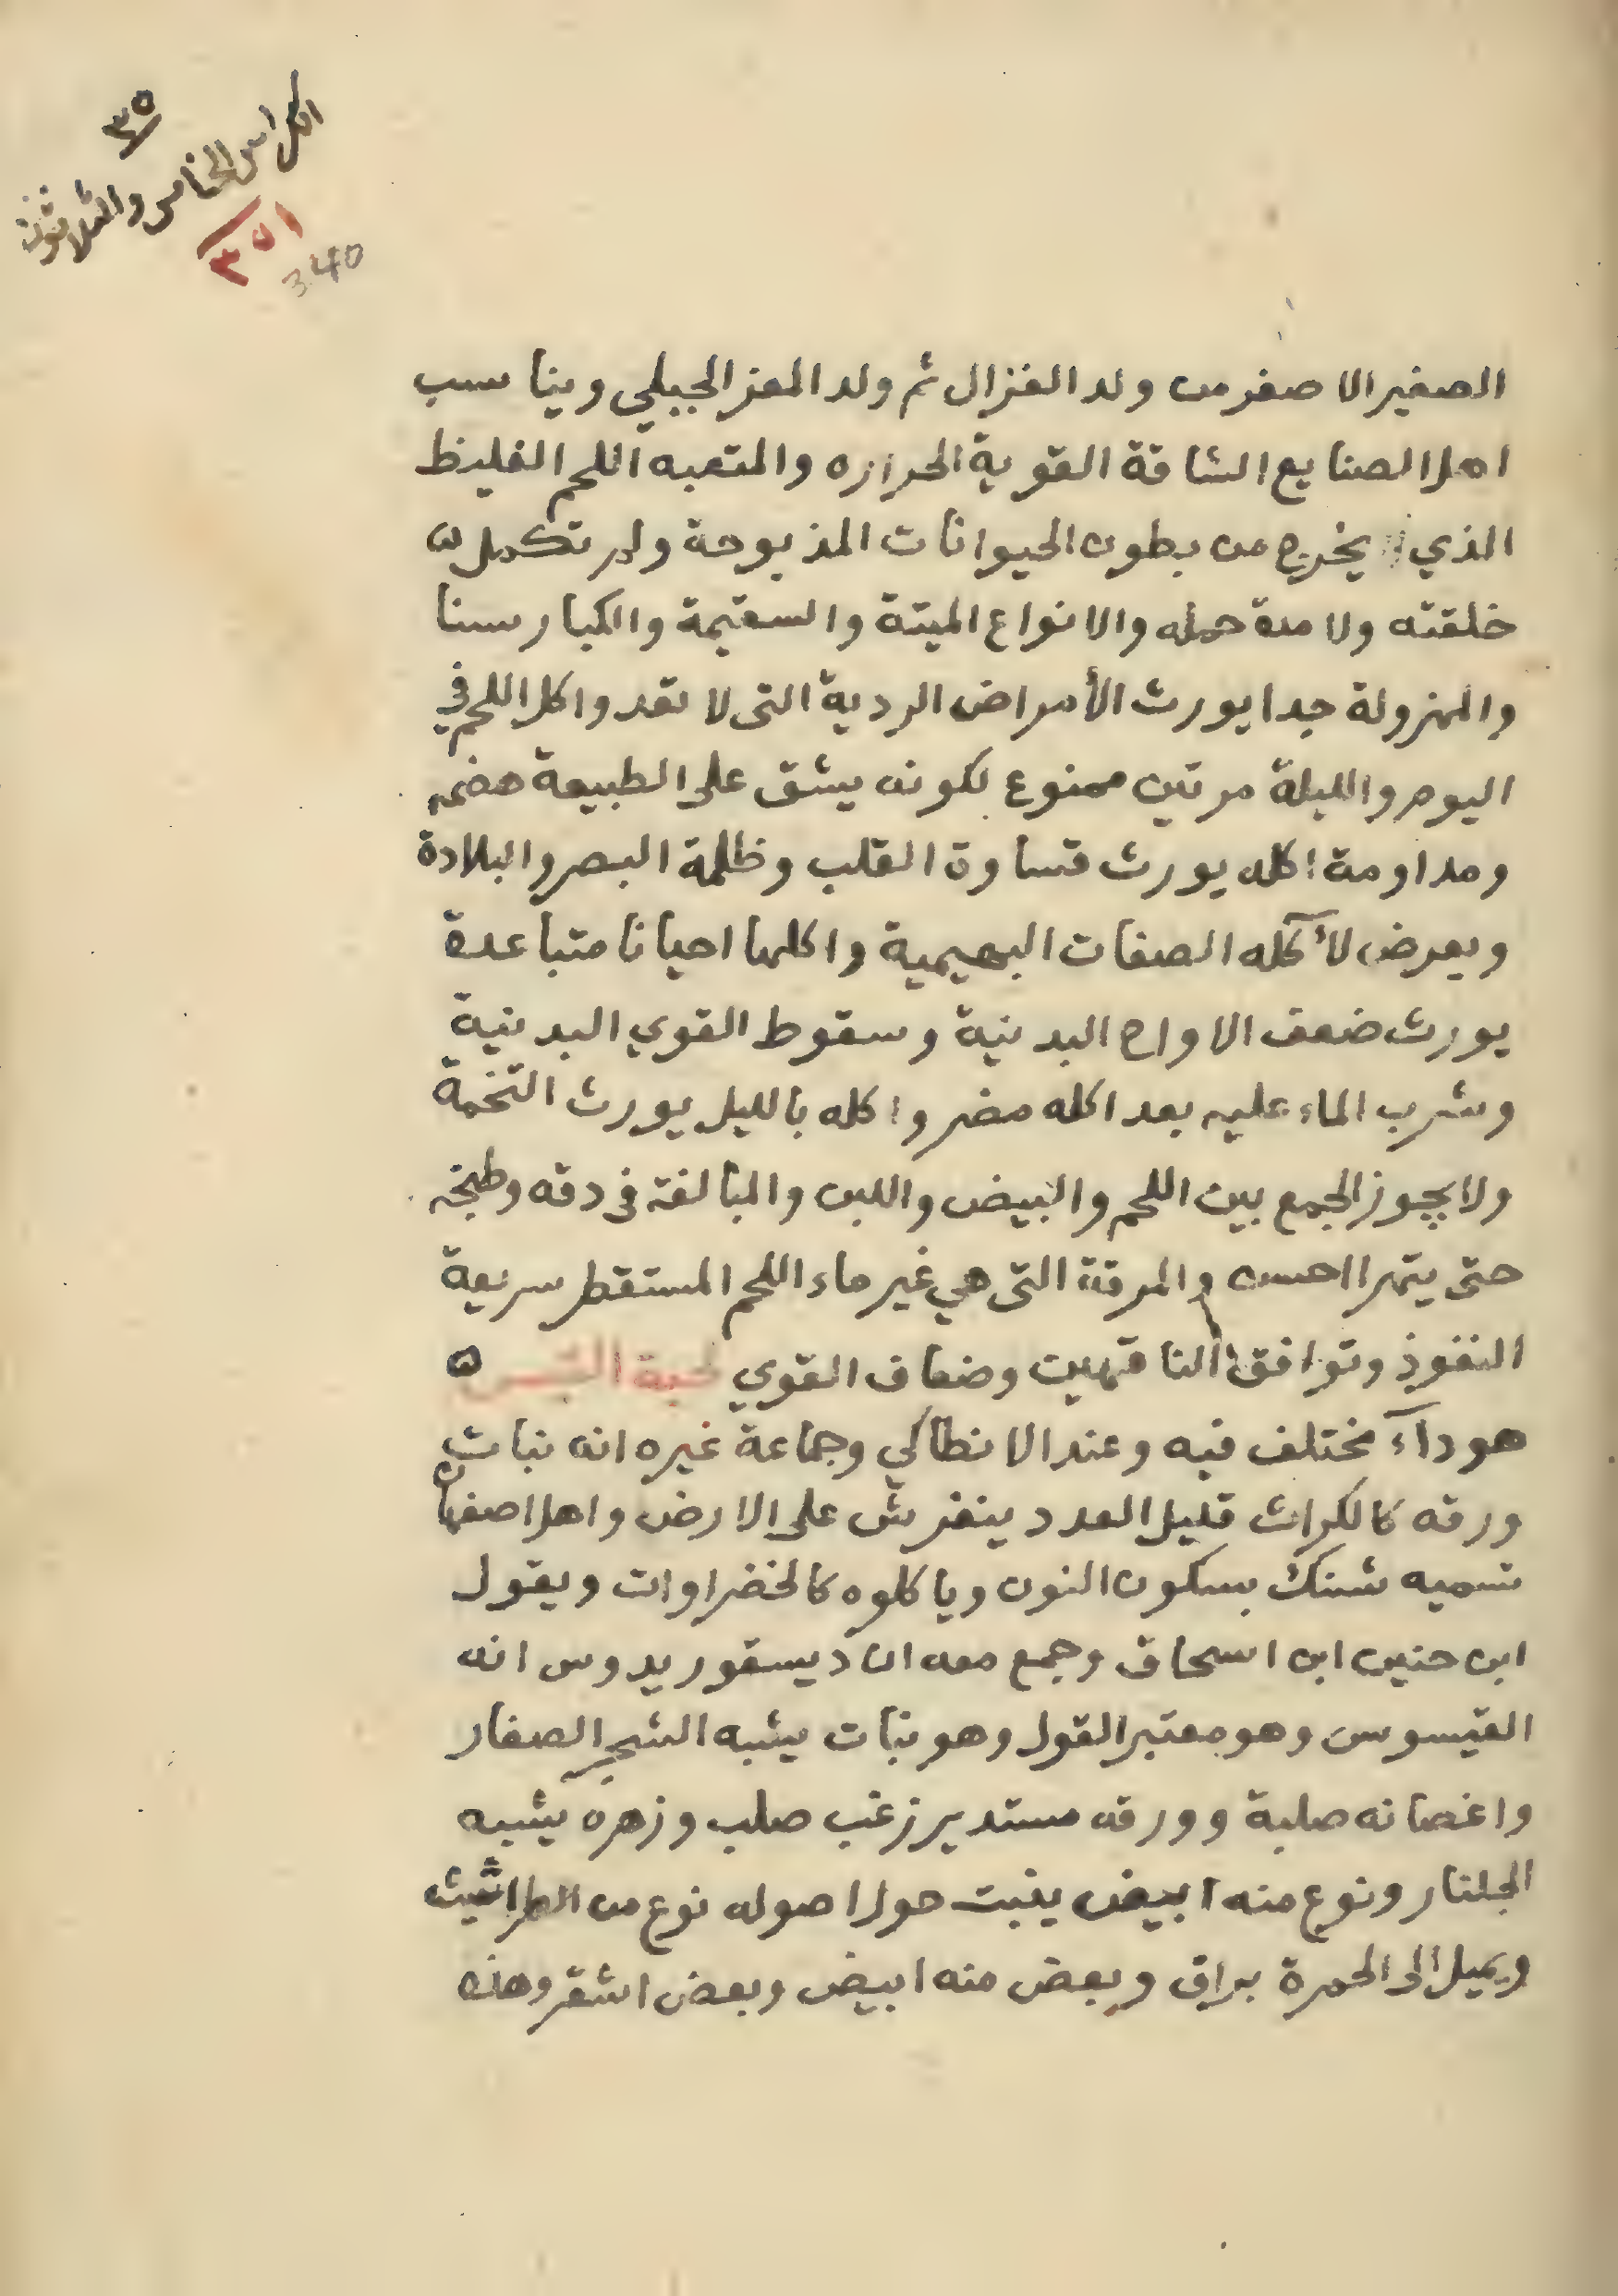 ٣٥
الكراس الخامس والثلاثون
٣٥١
340
الصغير الاصغر من ولد الغزال ثم ولد المعز الجبلي ويناسب
اهل الصنايع الشاقة القوية الحراره والمتعبه اللحم الغليظ
الذي يخرج من بطون الحيوانات المذبوحة ولم تكمل
خلقته ولا مدة حمله والانواع الميتة والسقيمة والكبار سنا
والمهزولة جدا يورث الأمراض الردية التى لا تعد واكل اللحم في
اليوم والليلة مرتين ممنوع لكونه يشق على الطبيعة هضمه
ومداومة اكله يورث قساوة القلب وظلمة البصر والبلادة
ويعرض لأكله الصفات البهيمية واكلها احيانا متباعدة
يورث ضعف الاواح البدنية وسقوط القوي البدنية
وشرب الماء عليه بعد اكله مضر واكله بالليل يورث التخمة
ولا يجوز الجمع بين اللحم والبيض واللبن والمبالغة فى دقه وطبخه
حتى يتهرا احسن والمرقة التى هي غير ماء اللحم المستقطر سريعة
النفوذ وتوافق الناقهين وضعاف القوي لحية التيس
هو دآء مختلف فيه وعند الانطاكي وجماعة غيره انه نبات
ورقه كالكراث قليل العدد ينفرش على الارض واهل اصفهان
تسميه شنك بسكون النون وياكلوه كالخضراوات ويقول
ابن حنين ابن اسحاق وجمع معه ان ديسقوريدوس انه
القيسوس وهو معتبر القول وهو نبات يشبه الشجر الصغار
واغصانه صلبة وورقه مستدير زغب صلب وزهره يشبه
الجلنار ونوع منه ابيض ينبت حول اصوله نوع من الطراثيث
ويميل الى الحمرة براق وبعض منه ابيض وبعض اشقر وهذه